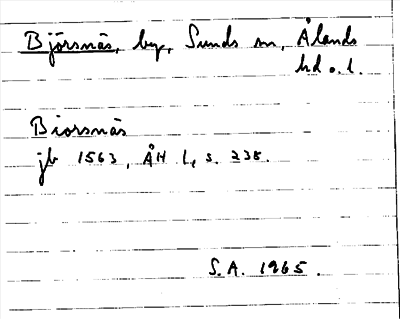 Björsnäs, by, Sunds sn, Ålands
hd o. l.
Biorsnäs
jb 1563, ÅH 1, s. 238.
S.A. 1965.